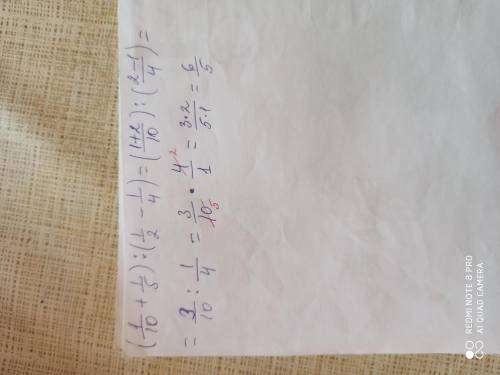 (1/10 + 1/5) : (1/2 - 1/4) = (1+2/10) : (2-1/4) =
= 3/10 : 1/4 = 3/10 5 · 4 2/1 = 3·2/5·1 = 6/5
REDMI NOTE 8 PRO
AI QUAD CAMERA